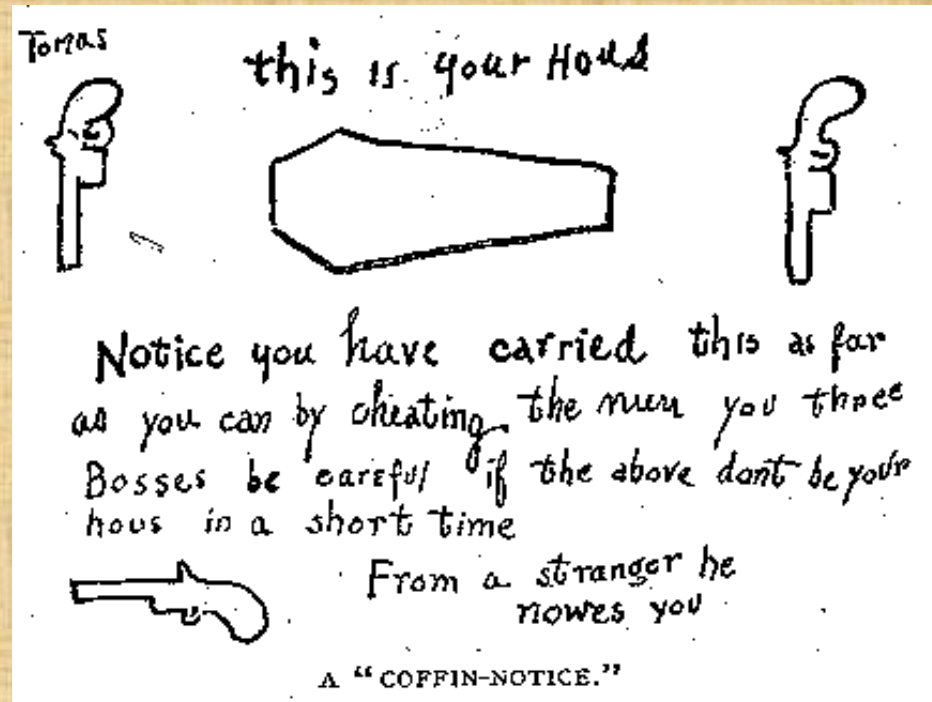 Tomas
this is your Hous
Notice you have carried this as far
as you can by cheating the men you three
Bosses be careful if the above dont be your
hous in a short time
From a stranger he
nowes you
A "COFFIN-NOTICE."